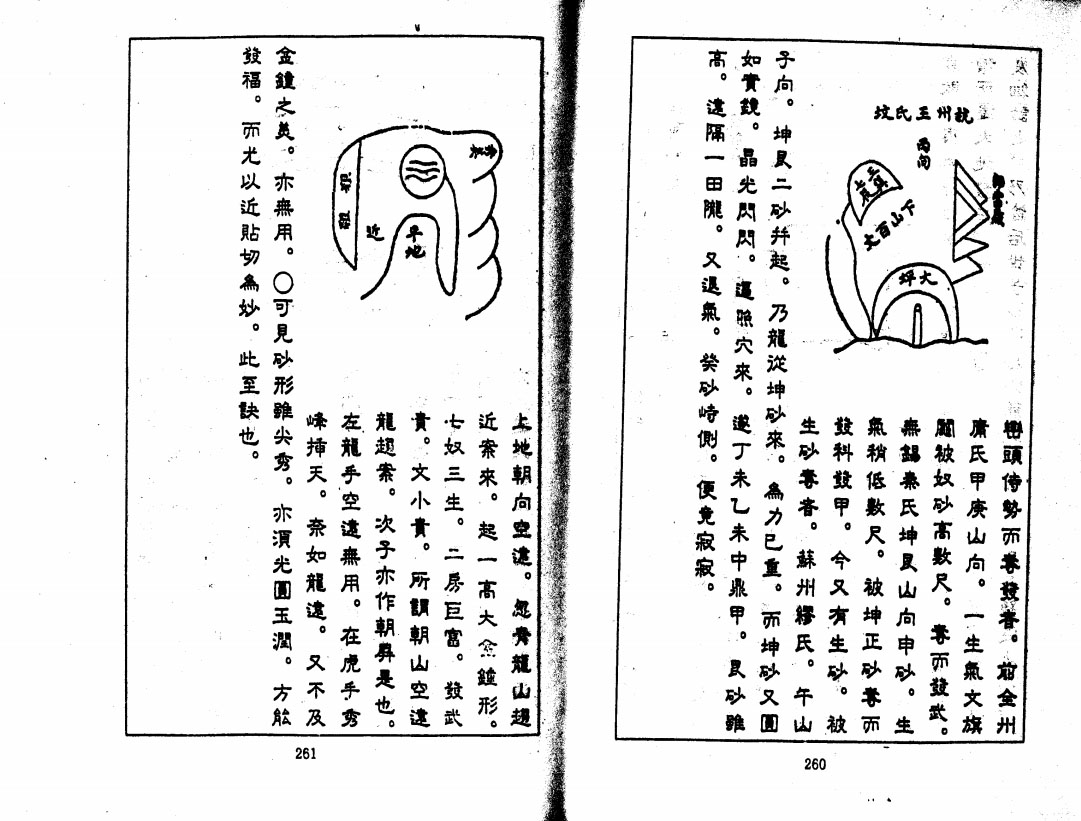 杭州王氏坟
丙向
下山百丈
大坪
巒頭侍勢而奪發者。前全州
唐氏甲庚山向。一生氣文旗
鬪被奴砂高數尺。奪而發武。
無錫秦氏坤艮山向申砂。生
氣稍低數尺。被坤正砂奪而
發科發甲。今又有生砂。被
生砂奪者。蘇州繆氏。午山
子向。坤艮二砂并起。乃龍從坤砂來。為力已重。而坤砂又圓
如寶鏡。晶光閃閃。逼照穴來。遂丁未乙未中鼎甲。艮砂雖
高。遠隔一田隴。又退氣。癸砂峙側。便竟寂寂。
260
近
平地
上地朝向空遠。忽青龍山趲
近案來。起一高大金鐘形。
七奴三生。二房巨富。發武
貴。文小貴。所謂朝山空遠
龍超案。次子亦作朝班是也。
左龍手空遠無用。在虎手秀
峰揷天。奈如龍遠。又不及
金鐘之美。亦無用。○可見砂形雖尖秀。亦須光圓玉潤。方能
發福。而尤以近貼切為妙。此至訣也。
261